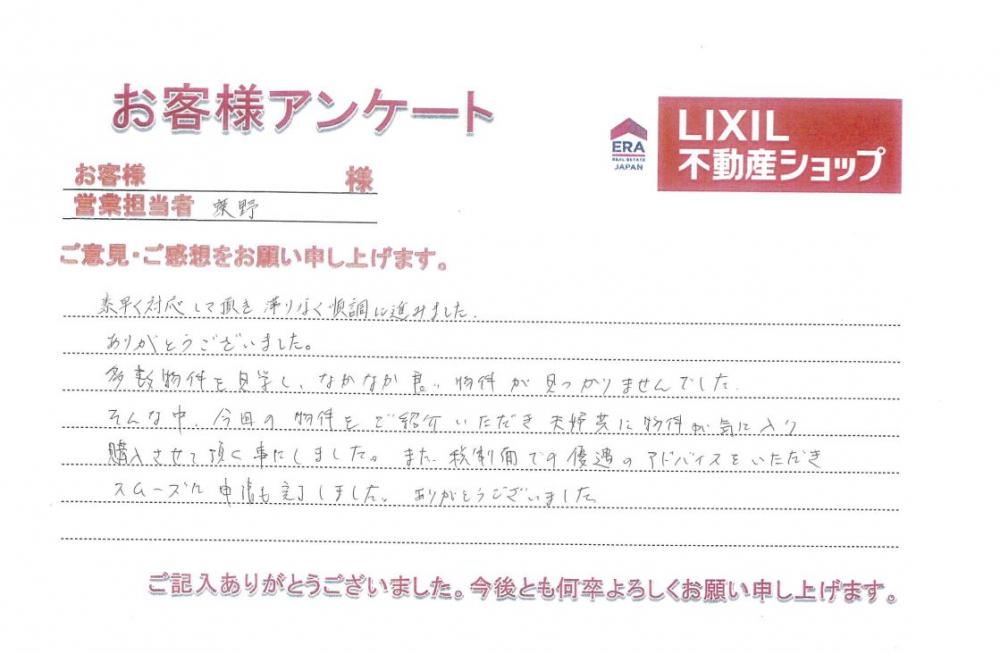 お客様アンケート
ERA
REAL ESTATE
JAPAN
LIXIL
不動産ショップ
お客様 様
営業担当者 野
ご意見・ご感想をお願い申し上げます。
素早く対応して頂き 滞りなく順調に進みました.
ありがとうございました。
多数物件を見学し、なかなか良い物件が見つかりませんでした.
そんな中、今回の物件をご紹介いただき 夫婦共に物件が気に入り
購入させて頂く事にしました。また 税制面での優遇のアドバイスをいただき
スムーズに申請も完了しました。ありがとうございました
ご記入ありがとうございました。今後とも何卒よろしくお願い申し上げます。